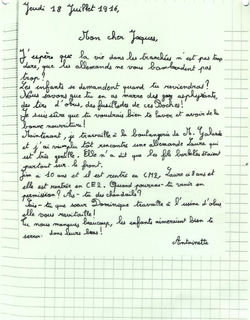 Jeudi 18 Juillet 1916,
Mon cher Jacques,
J'espère que la vie dans les tranchées n'est pas trop
dure, que les allemands ne vous bombardent pas
trop ?
Les enfants se demandent quand tu reviendras ?
Nous savons que tu en as marre des gaz asphyxiants,
des tirs d'obus, des fusillades de ces Boches !
Je suis sûre que tu voudrais bien te laver et avoir de la
bonne nourriture !
Maintenant, je travaille à la boulangerie de M.
et j'ai rencontré une allemande Laura qui
est très gentille. Elle m'a dit que la
partout sur le front.
a 10 ans et il est rentré en CM2. Laure a 8 ans et
elle est rentrée en CE2. Quand pourras-tu venir en
permission ? As-tu du chandail ?
Sais-tu que sœur Dominique travaille à l'usine d'obus
elle vous ravitaille !
Tu nous manques beaucoup, les enfants aimeraient bien te
serrer dans leurs bras !
Antoinette